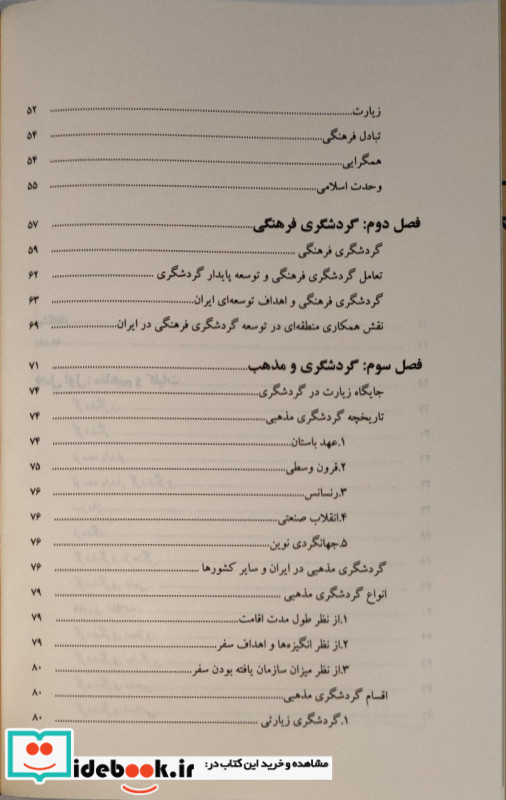 زیارت ۵۲
تبادل فرهنگی ۵۴
همگرایی ۵۴
وحدت اسلامی ۵۵
فصل دوم: گردشگری فرهنگی ۵۷
گردشگری فرهنگی ۵۹
تعامل گردشگری فرهنگی و توسعه پایدار گردشگری ۶۲
گردشگری فرهنگی و اهداف توسعه‌ای ایران ۶۳
نقش همکاری منطقه‌ای در توسعه گردشگری فرهنگی در ایران ۶۹
فصل سوم: گردشگری و مذهب ۷۱
جایگاه زیارت در گردشگری ۷۴
تاریخچه گردشگری مذهبی ۷۴
۱.عهد باستان ۷۴
۲.قرون وسطی ۷۵
۳.رنسانس ۷۶
۴.انقلاب صنعتی ۷۶
۵.جهانگردی نوین ۷۶
گردشگری مذهبی در ایران و سایر کشورها ۷۶
انواع گردشگری مذهبی ۷۹
۱.از نظر طول مدت اقامت ۷۹
۲.از نظر انگیزه‌ها و اهداف سفر ۷۹
۳.از نظر میزان سازمان یافته بودن سفر ۸۰
اقسام گردشگری مذهبی ۸۰
۱.گردشگری زیارتی ۸۰
مشاهده و خرید این کتاب در:
idebook.ir